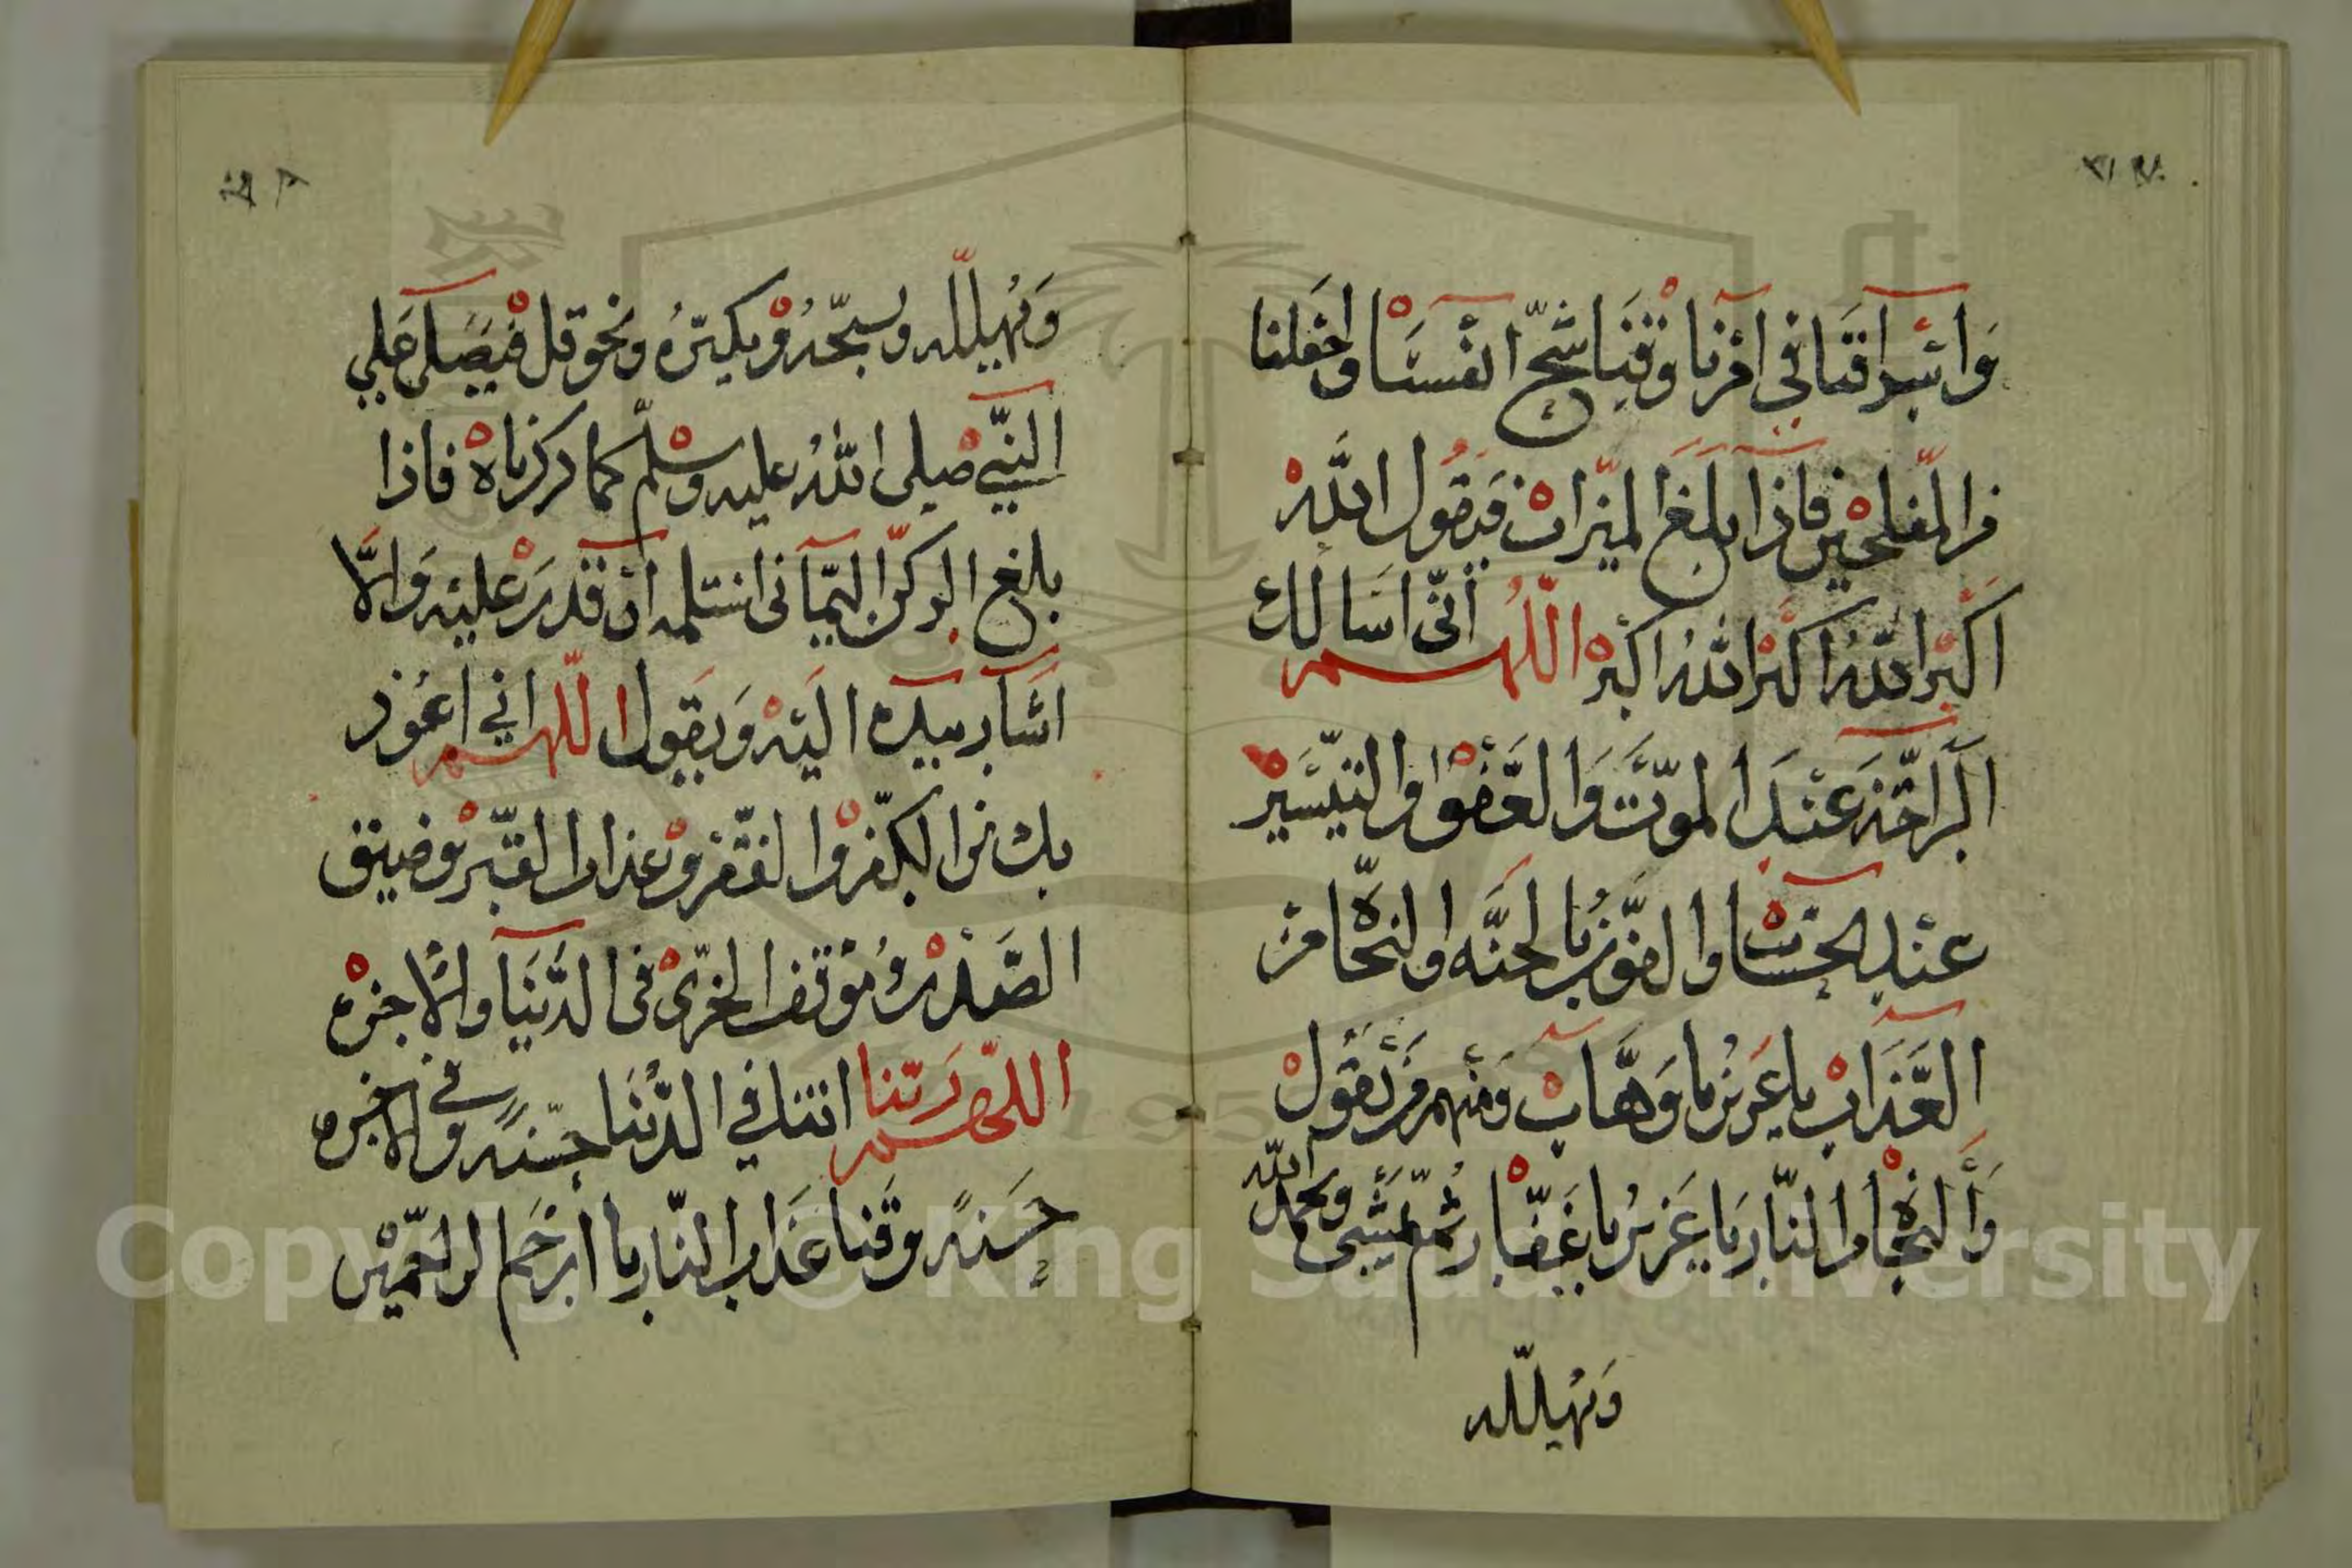 وَاسْرافَنا في امْرنا وَقِنَا شحّ انفسنا واجْعَلنا
من المفلحين فاذا بلغ الميزاب فيقول اللّه
اكبر اللّهُ اكبر اللّهُ اكبر اللّهُم انّى اسَالك
الراحَة عنْدَ الموت وَالعَفو والتيْسير
عنْد الحساب والفوز بالجنّه والنجاة من
العَذاب يا عَزيز يا وَهَّاب ومنهم من يَقُول
وَالنجاة من النّار يَا عَزيز يا غَفّار ثم يمشي ويحمد اللّه
وَيُهيلله
وَيُهيلله ويسبّحُه ويكبرّهُ ويحوقل فيصَلى عَلي
النبّي صلى اللّهُ عليه وسلّم كما ذكرناه فاذا
بلغ الركن اليَماني استلمه انْ قَدرَ عليْه وَالّا
اشَار بيَده اليْه وَيقول اللّهم اني اعُوذ
بك من الكفر والفقْر وعذاب القبر وضيق
الصّدر وموقف الخزى في الدّنْيَا والاخره
اللّهم رَبّنا اتنا في الدّنْيَا حسنةً وفي الاخره
حَسَنةً وقَنا عَذاب النّار يا ارْحَم الراحمين